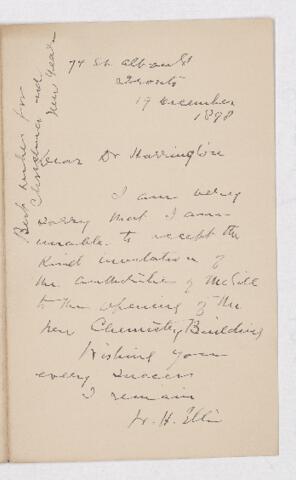 74 St. Alban St
Toronto
19 December
1898
Dear Dr Harrington
I am very
sorry that I am
unable to accept the
kind invitation of
the authorities of McGill
to the opening of the
new Chemistry Building
Wishing you
every success
I remain
W. H. Ellis
Best wishes for
Christmas and
New Year